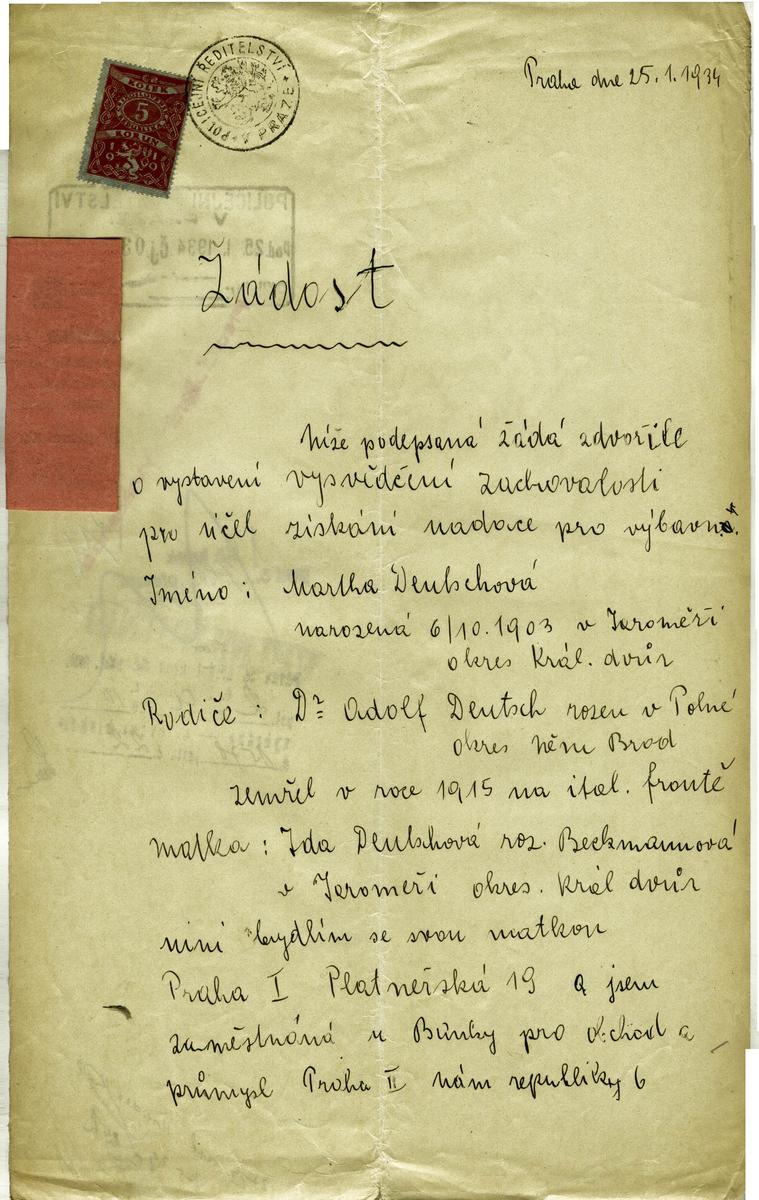 Praha dne 25.1.1934
POLICEJNÍ ŘEDITELSTVÍ V PRAZE
KOLEK
5
KORUN
1919
Žádost
Níže podepsaná žádá zdvořile
o vystavení vysvědčení zachovalosti
pro účel získání nadace pro výbavné.
Jméno : Martha Deutschová
narozená 6/10.1903 v Jaroměři
okres Král. dvůr
Rodiče : Dr Adolf Deutsch rozen v Polné
okres Něm Brod
zemřel v roce 1915 na ital. frontě
matka : Ida Deutschová roz. Beckmannová
v Jaroměři okres. Král dvůr
nini bydlím se svou matkou
Praha I Platneřská 19 a jsem
zaměstnáná u Banky pro obchod a
průmysl Praha II nám republiky 6